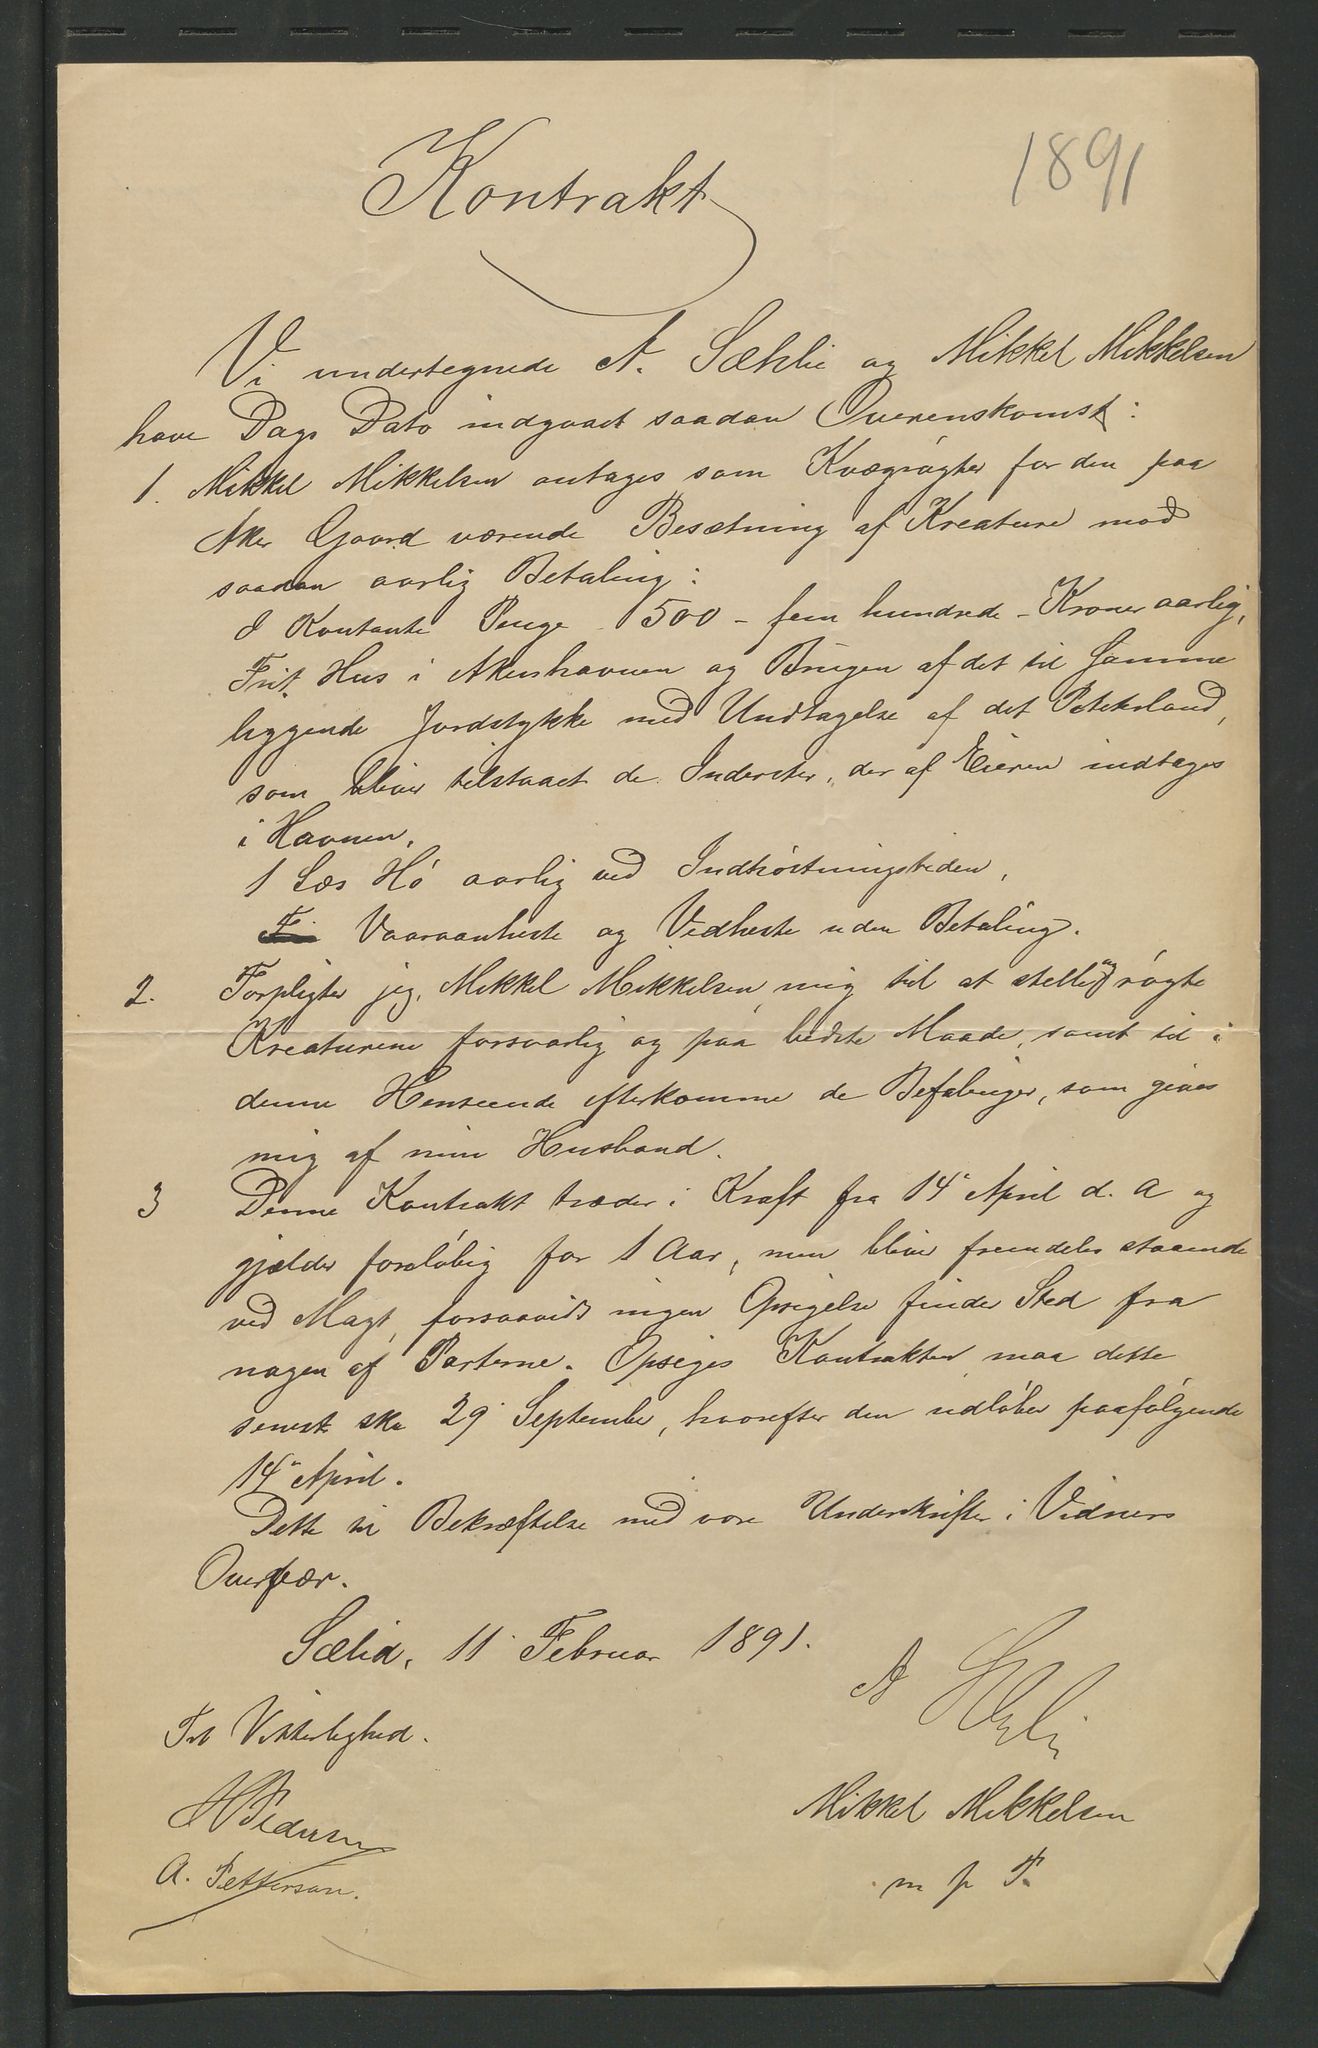 1891
Kontrakt
Vi undertegnede A. Sæhlie og Mikkel Mikkelsen
have Dags Dato indgaaet saadan Overenskomst:
1. Mikkel Mikkelsen antages som Kvægrøgter for den paa
Aker Gaard værende Besætning af Kreature mod
saadan aarlig Betaling:
I Kontante Penge 500 - fem hundrede - Kroner aarlig,
Frit Hus i Akershavnen og Brugen af det til Samme
liggende Jordstykke med Undtagelse af det Potetesland,
som bliver tilstaaet de Inderster, der af Eieren indtages
i Havnen.
1 Læs Hø aarlig ved Indhøstningstiden,
Vaaraanheste og Vedheste uden Betaling.
2. Forpligter jeg, Mikkel Mikkelsen, mig til at stelle og røgte
Kreaturene forsvarlig og paa bedste Maade, samt til i
denne Henseende efterkomme de Befalinger, som gives
mig af min Husbond.
3 Denne Kontrakt træder i Kraft fra 14 April d. A og
gjælder foreløbig for 1 Aar, men bliver fremdeles staaende
ved Magt, forsaavidt ingen Opsigelse finder Sted fra
nogen af Parterne. Opsiges Kontrakten maa dette
senest ske 29 September, hvorefter den udløber paafølgende
14 April.
Dette til Bekræftelse med vore Underskrifter i Vidners
Overvær.
Sælid, 11 Februar 1891.
A Sæhlie
Til Vitterlighed.
Mikkel Mikkelsen
m p F.
H Pedersen
A. Pettersen.